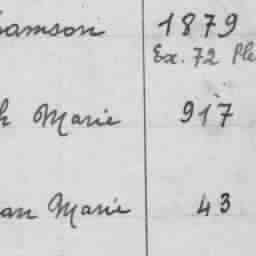 Samson 1879
Ex. 72 Ple
h Marie 917
an Marie 43